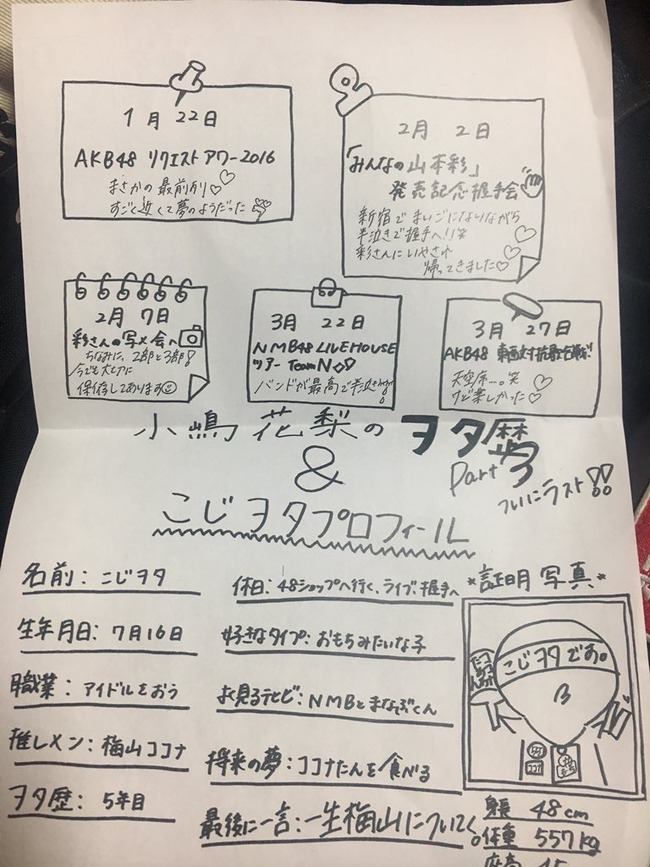 1月 22日
AKB48 リクエストアワー2016
まさかの最前列♡
すごく近くて夢のようだった
2月 2日
「みんなの山本彩」
発売記念握手会
新宿でまいごになりながら
半泣きで握手へ!!笑
彩さんにいやされ
帰ってきました♡
2月 7日
彩さんの写メ会へ
ちなみに、2部と3部!
今でも大切に
保存してあります☺
3月 22日
NMB48 LIVE HOUSE
ツアー TeamN♡
バンドが最高で
3月 27日
AKB48
天空席…。笑
けど楽しかった♡
小嶋花梨のヲタ歴
Part3
ついにラスト!!
&
こじヲタプロフィール
名前:こじヲタ
生年月日:7月16日
職業:アイドルをおう
推しメン:梅山ココナ
ヲタ歴:5年目
休日:48ショップへ行く、ライブ、握手へ
好きなタイプ:おもちみたいな子
よく見るテレビ:NMBとまなぶくん
将来の夢:ココナたんを食べる
最後に一言:一生梅山についてく。
*証明写真*
こじヲタです。
身長 48cm
体重 557kg
座高 45